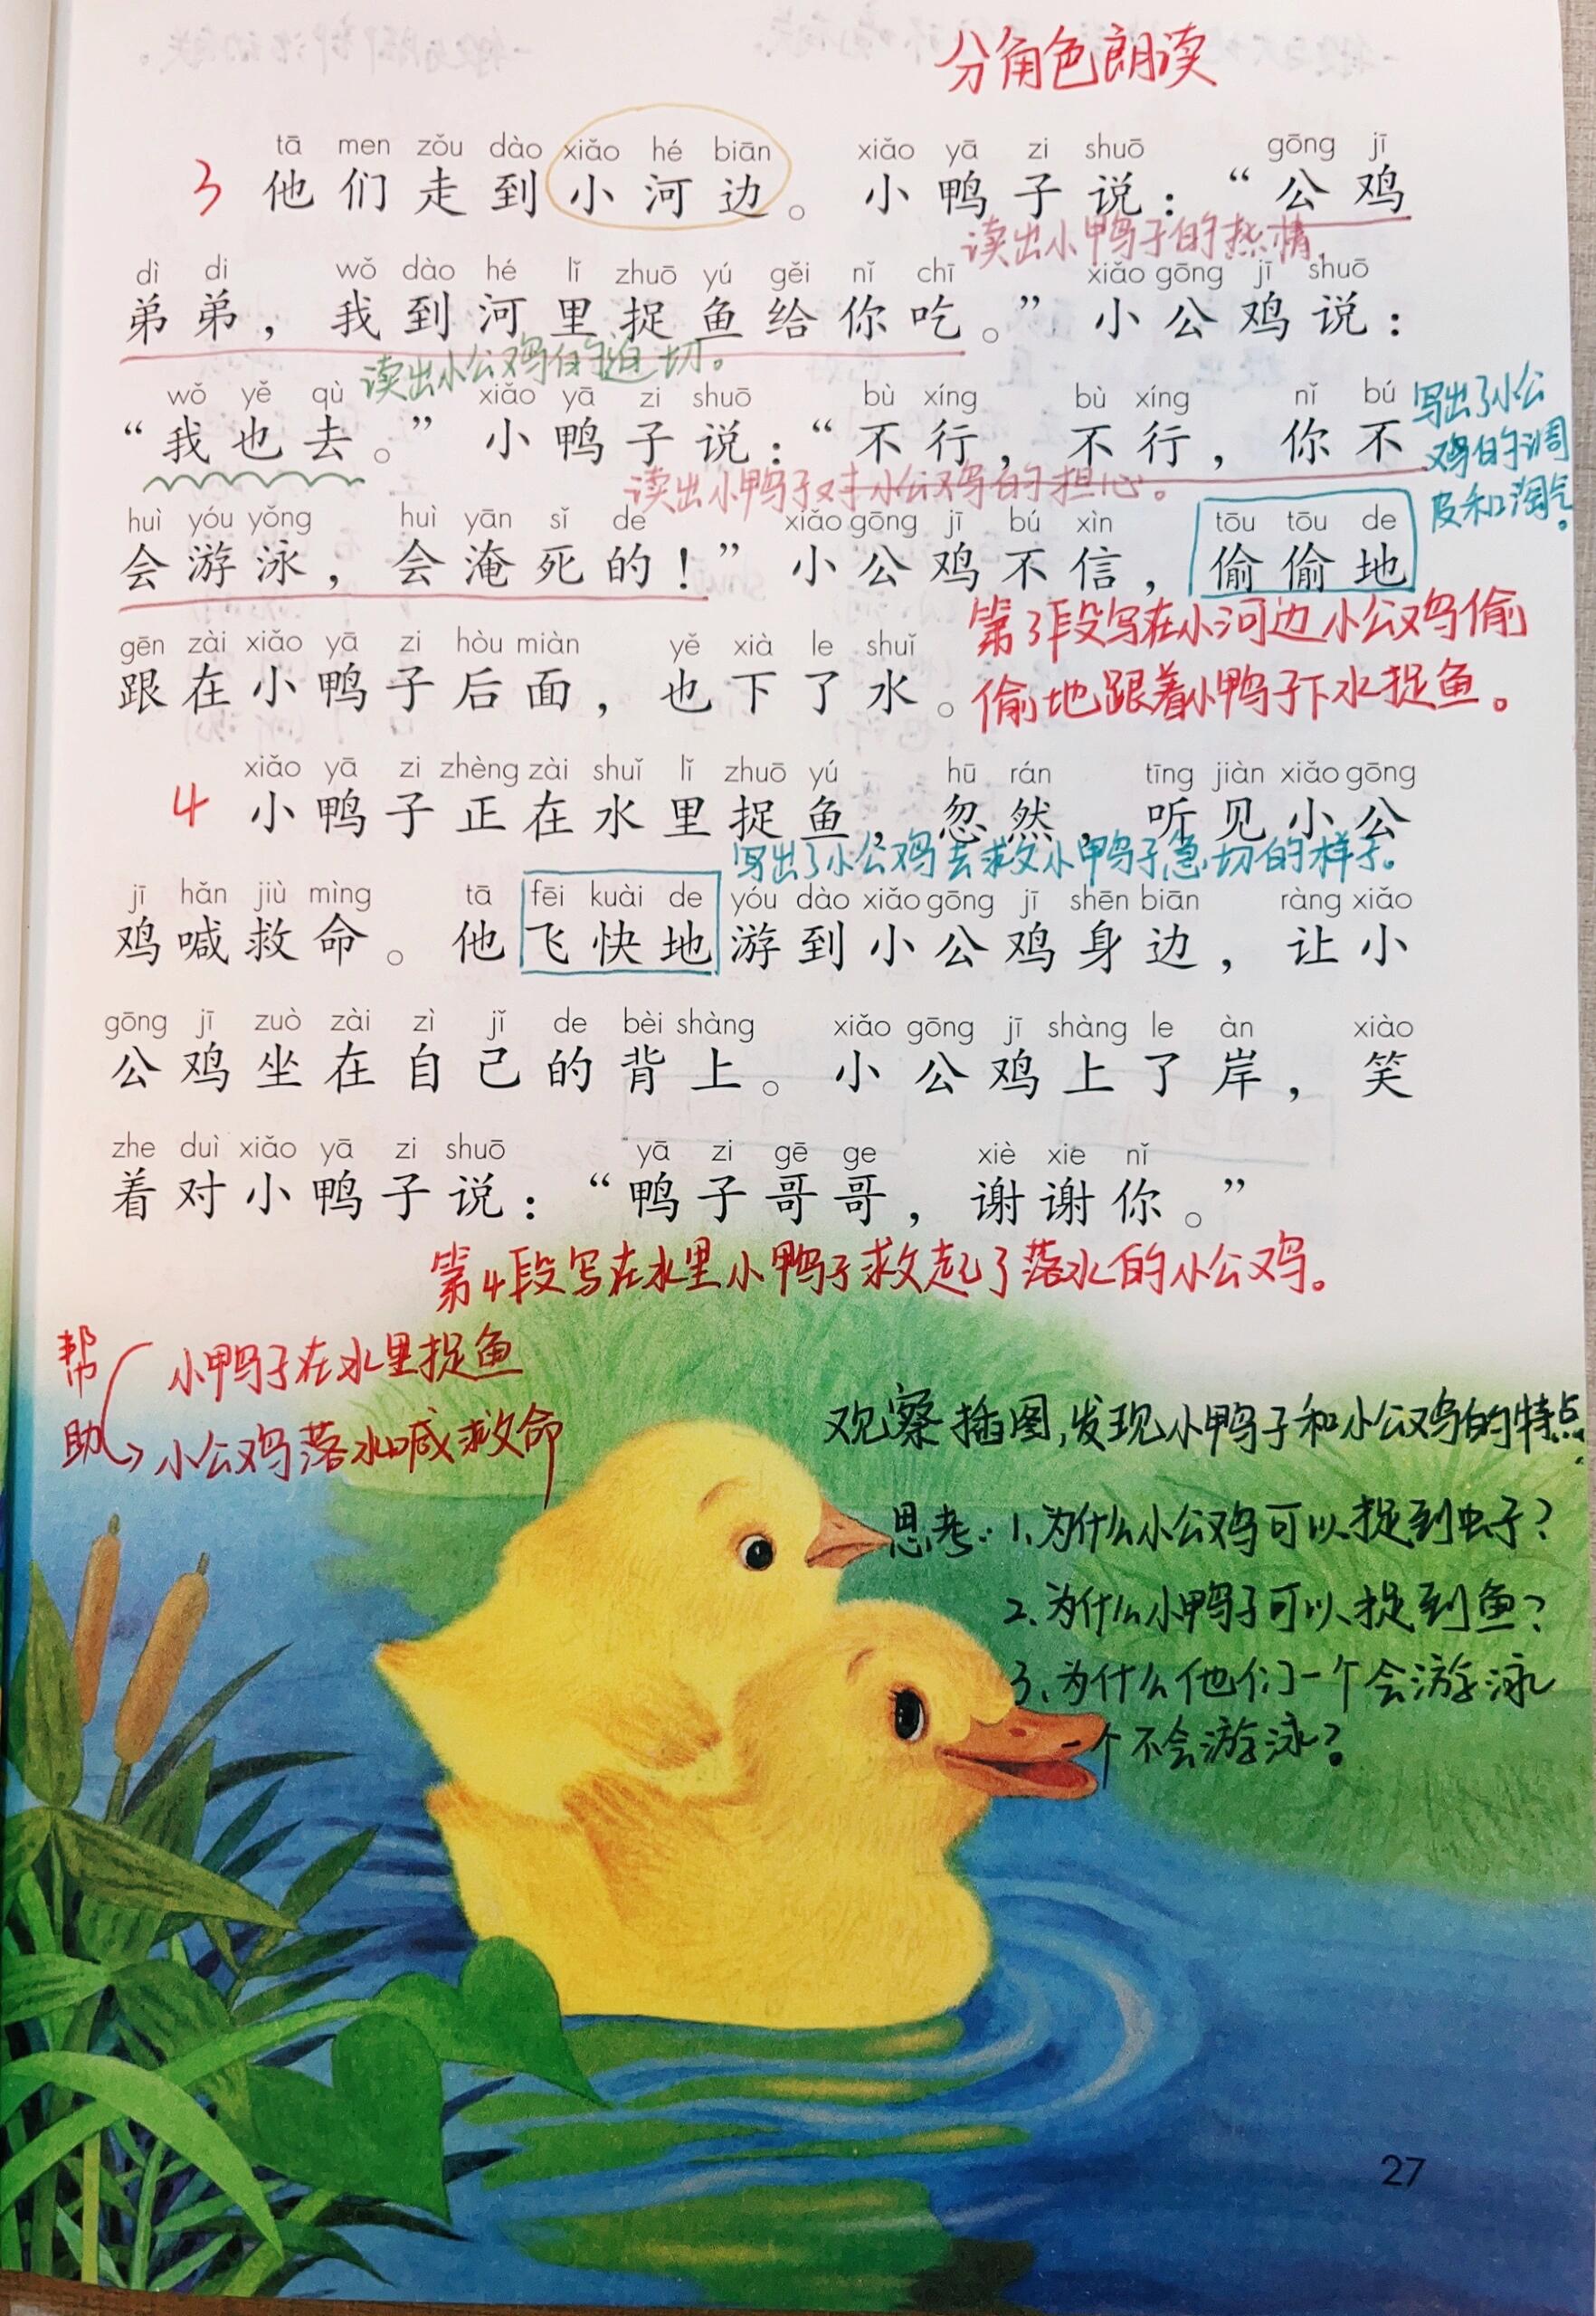 分角色朗读
tā men zǒu dào xiǎo hé biān xiǎo yā zi shuō gōng jī
3 他们走到小河边。小鸭子说：“公鸡
读出小鸭子的热情，
dì di wǒ dào hé lǐ zhuō yú gěi nǐ chī xiǎo gōng jī shuō
弟弟，我到河里捉鱼给你吃。”小公鸡说：
读出小公鸡的迫切。
wǒ yě qù xiǎo yā zi shuō bù xíng bù xíng nǐ bú
“我也去。”小鸭子说：“不行，不行，你不
写出了小公
鸡的调
皮和淘气。
读出小鸭子对小公鸡的担心。
huì yóu yǒng huì yān sǐ de xiǎo gōng jī bú xìn tōu tōu de
会游泳，会淹死的！”小公鸡不信，偷偷地
gēn zài xiǎo yā zi hòu miàn yě xià le shuǐ
跟在小鸭子后面，也下了水。
第3段写在小河边小公鸡偷
偷地跟着小鸭子下水捉鱼。
xiǎo yā zi zhèng zài shuǐ lǐ zhuō yú hū rán tīng jiàn xiǎo gōng
4 小鸭子正在水里捉鱼，忽然，听见小公
写出了小公鸡去救小鸭子急切的样子。
jī hǎn jiù mìng tā fēi kuài de yóu dào xiǎo gōng jī shēn biān ràng xiǎo
鸡喊救命。他飞快地游到小公鸡身边，让小
gōng jī zuò zài zì jǐ de bèi shàng xiǎo gōng jī shàng le àn xiào
公鸡坐在自己的背上。小公鸡上了岸，笑
zhe duì xiǎo yā zi shuō yā zi gē ge xiè xie nǐ
着对小鸭子说：“鸭子哥哥，谢谢你。”
第4段写在水里小鸭子救起了落水的小公鸡。
帮助
小鸭子在水里捉鱼
小公鸡落水喊救命
观察插图，发现小鸭子和小公鸡的特点.
思考：1、为什么小公鸡可以捉到虫子？
2、为什么小鸭子可以捉到鱼？
3、为什么他们一个会游泳
一个不会游泳？
27